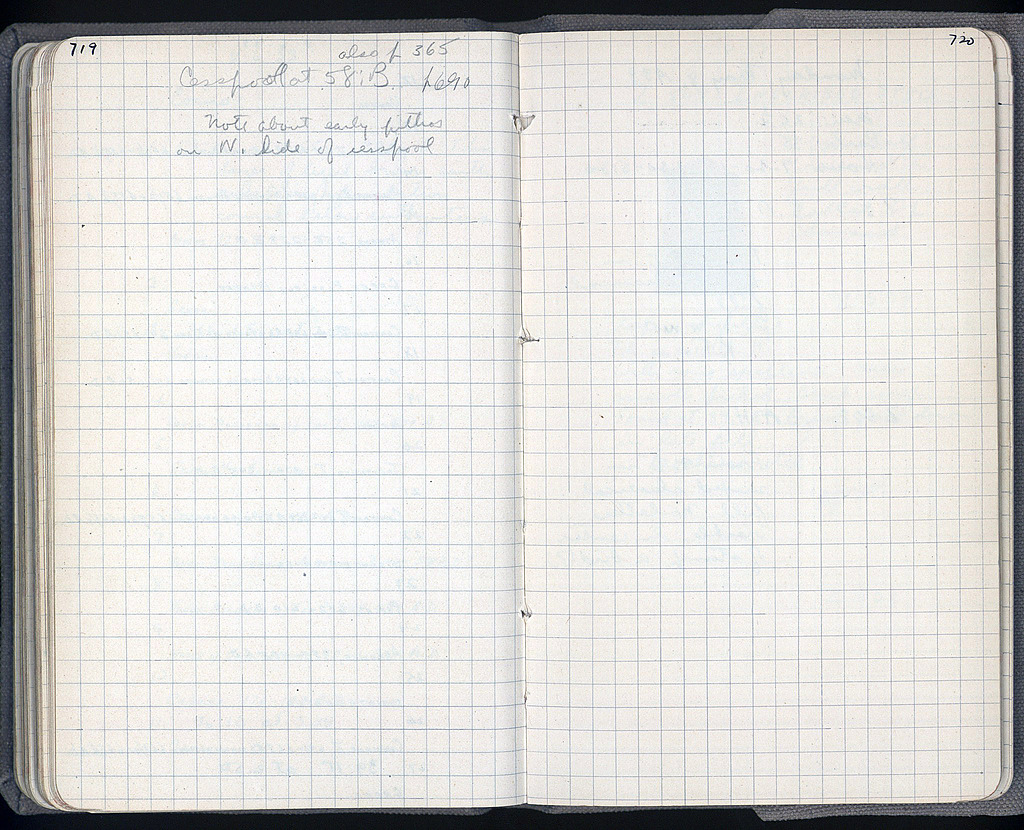 719
also p 365
Cesspool at 58:B p690
Note about early pithos
on N. side of cesspool
720